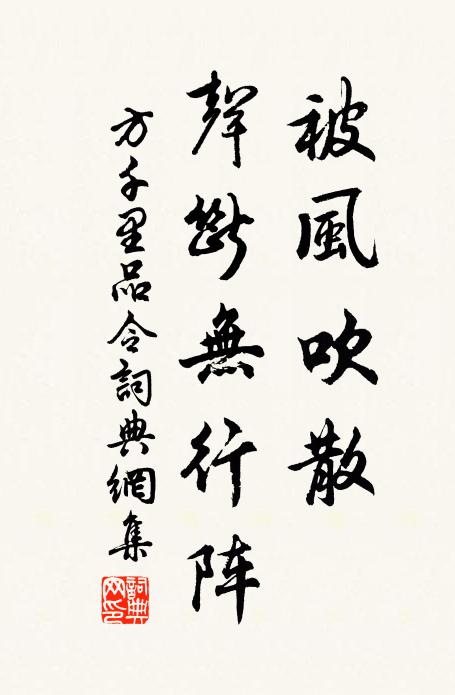 被風吹散
聲斷無行阵
方千里品令詞典網集
詞典网印